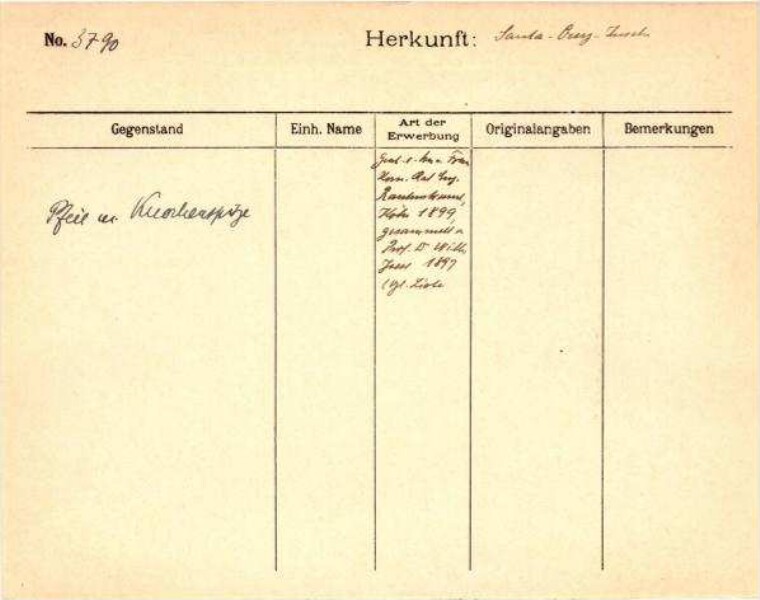 No. 3790
Herkunft: Santa-Cruz-Inseln
Gegenstand
Einh. Name
Art der Erwerbung
Originalangaben
Bemerkungen
Pfeil m. Knochenspitze
Frau
Rautenstrauch,
Köln 1899,
gesammelt v.
Prof. Dr. Wilh.
Joest 1897